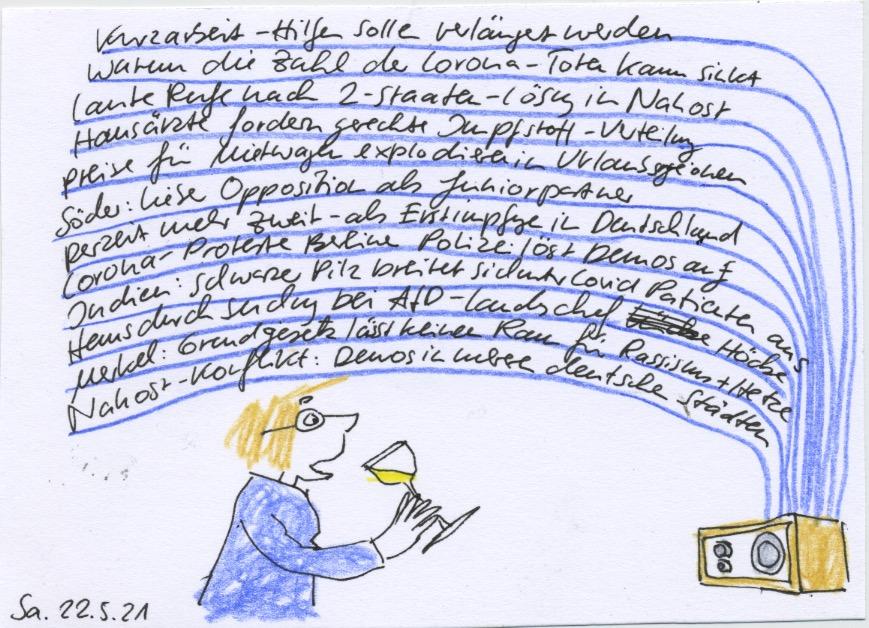 Kurzarbeit-Hilfen sollen verlängert werden
Warum die Zahl der Corona-Toten kaum sinkt
Laute Rufe nach 2-Staaten-Lösung in Nahost
Hausärzte fordern gerechte Impfstoff-Verteilung
Preise für Mietwagen explodieren in Urlaubsregionen
Söder: Opposition als Juniorpartner
Derzeit mehr Zweit- als Erstimpfungen in Deutschland
Corona-Proteste Berliner Polizei löst Demos auf
Indien: schwarzer Pilz breitet sich unter Covid Patienten aus
Hausdurchsuchung bei AfD-Landeschef Höcke
Merkel: Grundgesetz lässt keinen Raum für Rassismus + Hetze
Nahost-Konflikt: Demos in mehreren deutschen Städten
Sa. 22.5.21